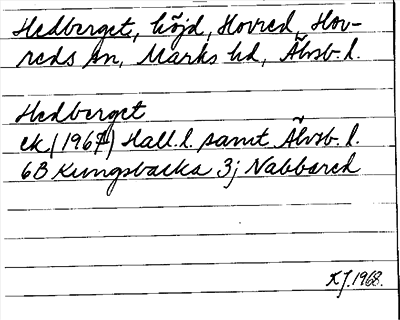 Hedberget, höjd, Hovred, Hov-
reds sn, Marks hd, Älvsb. l.
Hedberget
ek (1967) Hall. l. samt Älvsb. l.
6B Kungsbacka 3j Nabbared
KJ. 1968.